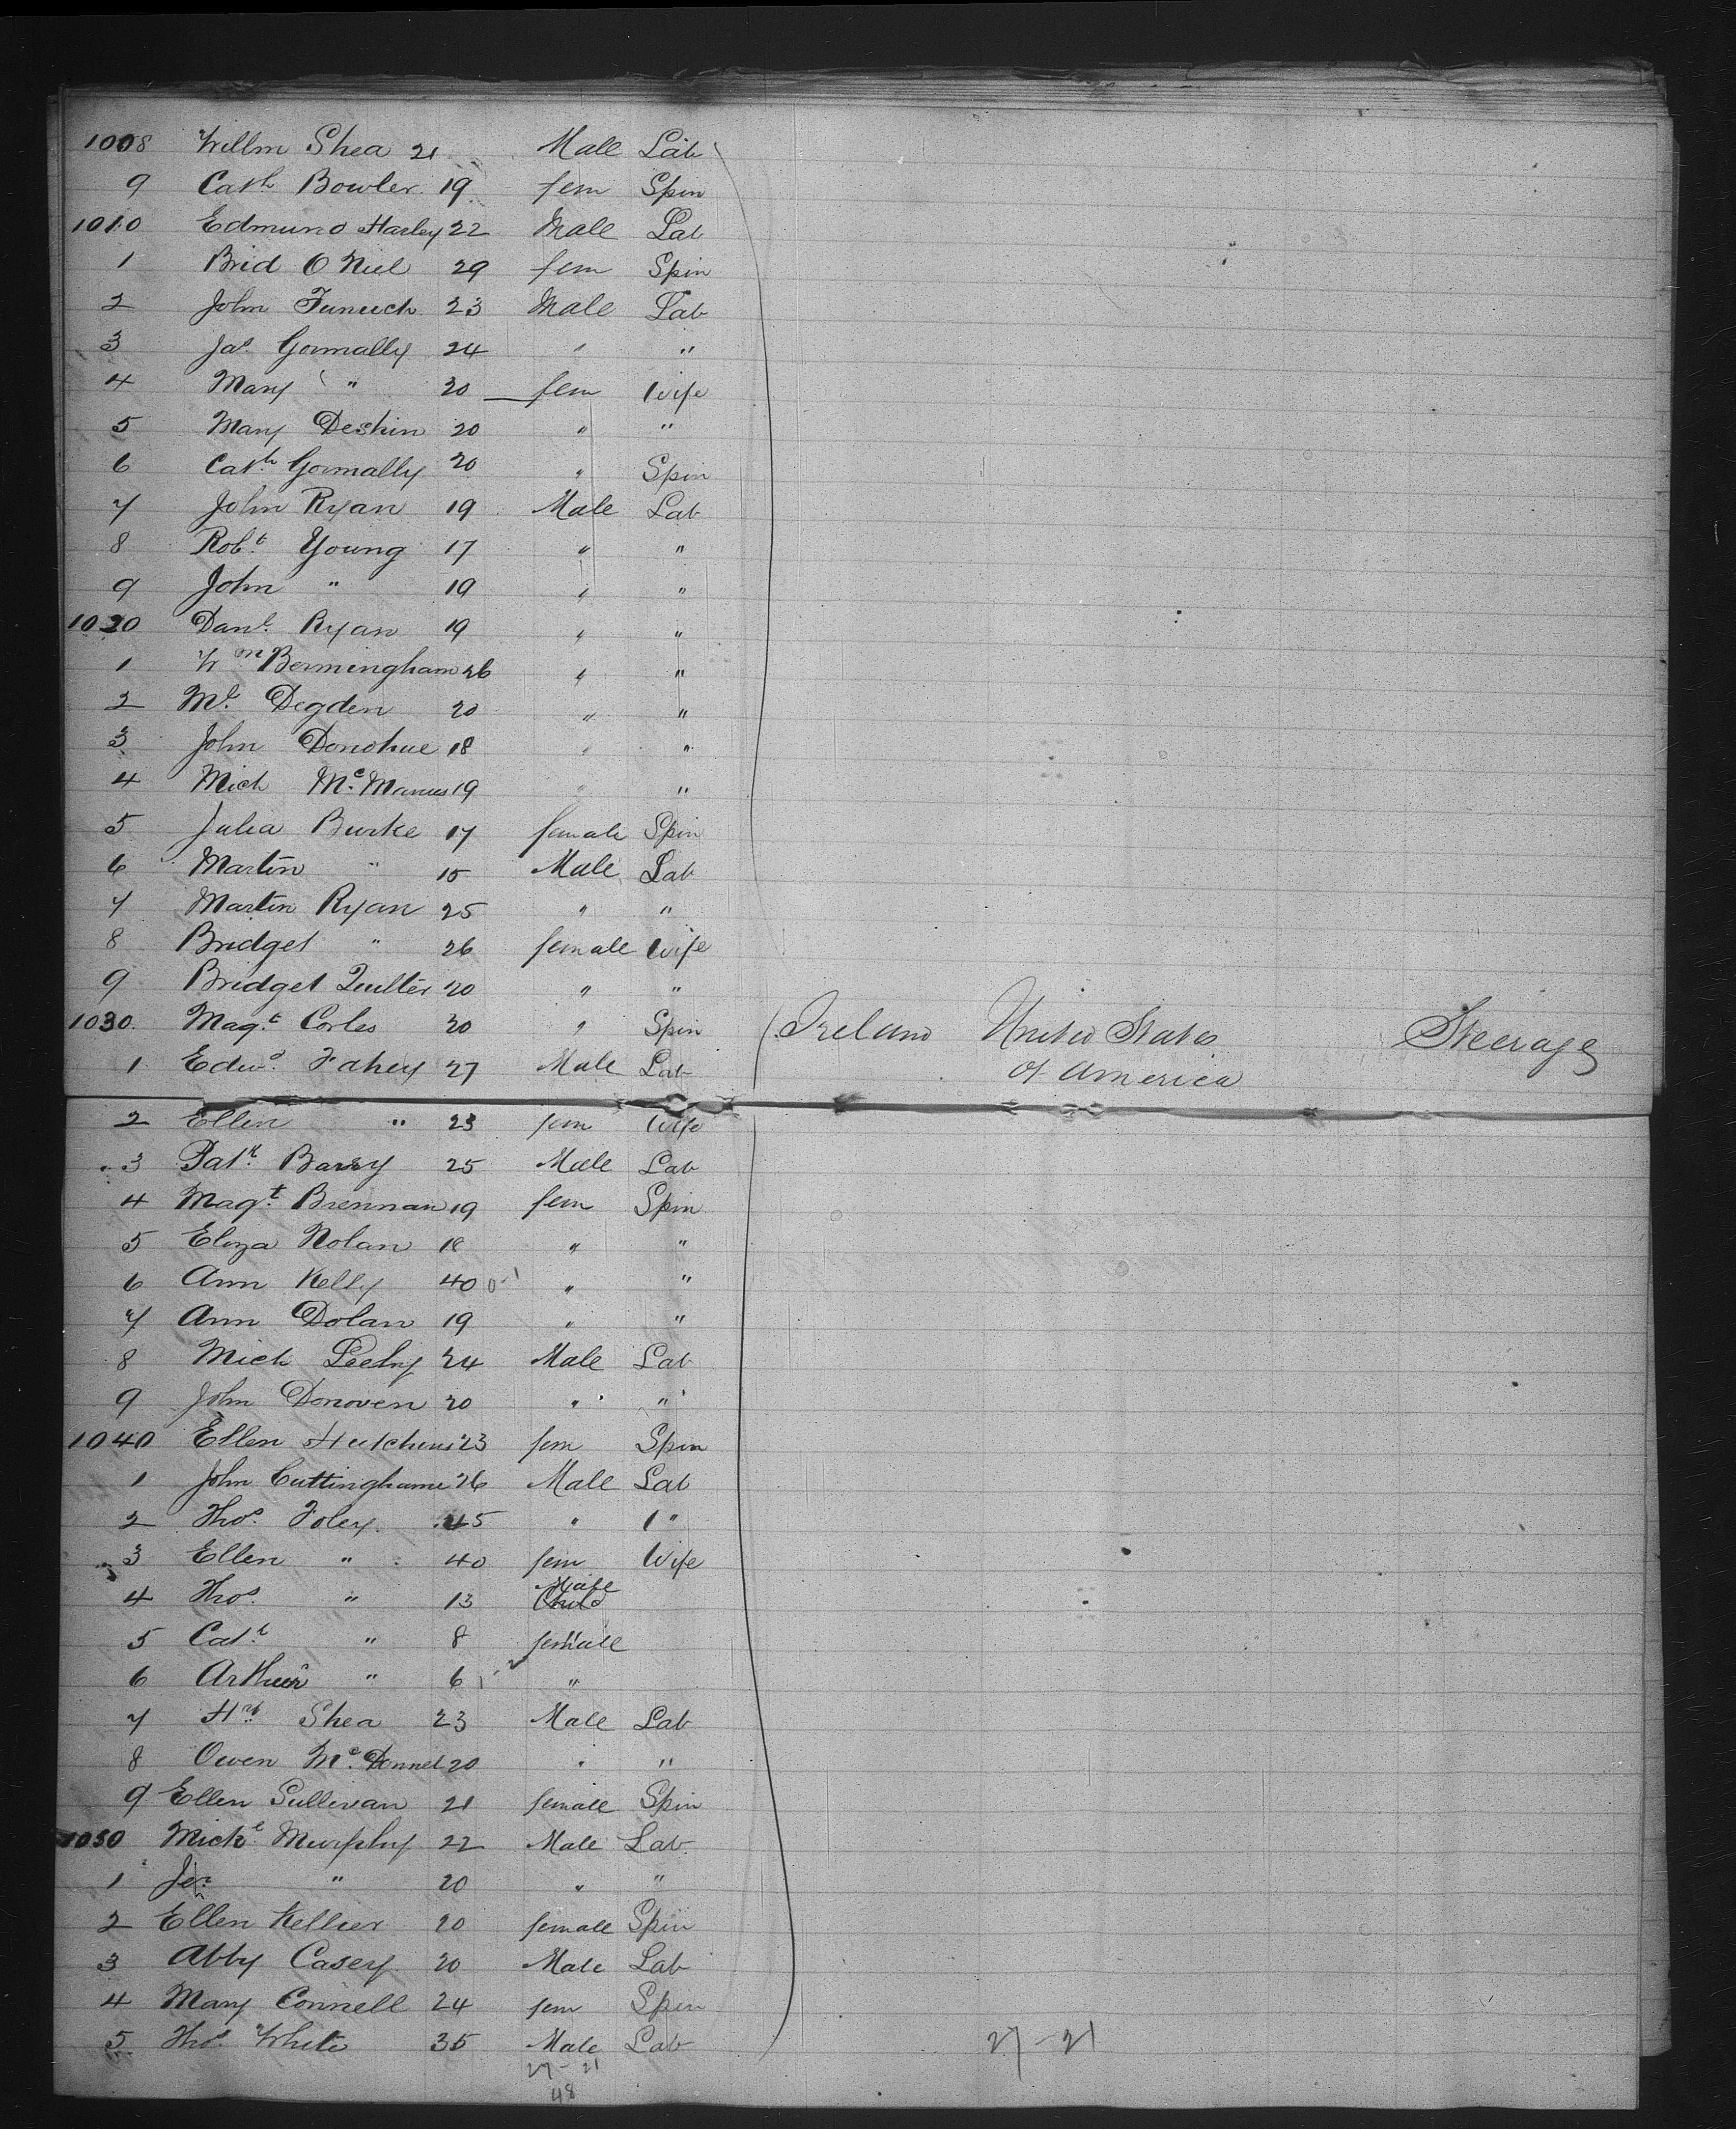 1008 Willm Shea 21 Male Lab
9 Cath Bowler 19 fem Spin
1010 Edmund Harley 22 Male Lab
1 Brid O Niel 29 fem Spin
2 John 23 Male Lab
3 Jas Gormally 24 " "
4 Mary " 20 fem Wife
5 Mary Deshin 20 " "
6 Cath Gormally 20 " Spin
7 John Ryan 19 Male Lab
8 Robt Young 17 " "
9 John " 19 " "
1020 Danl Ryan 19 " "
1 Wm Bermingham 26 " "
2 Ml Degden 20 " "
3 John Donohue 18 " "
4 Mich McManus 19 " "
5 Julia Burke 17 female Spin
6 Martin " 15 Male Lab
7 Martin Ryan 25 " "
8 Bridget " 26 female Wife
9 Bridget Quilter 20 " "
1030 Magt Corles 20 " Spin Ireland United States Steerage
1 Edwd Fahey 27 Male Lab of America
2 Ellen " 23 fem Wife
3 Patk Barry 25 Male Lab
4 Magt Brennan 19 fem Spin
5 Eliza Nolan 18 " "
6 Ann Kelly 40 0-1 " "
7 Ann Dolan 19 " "
8 Mich Leehy 24 Male Lab
9 John Donoven 20 " "
1040 Ellen Hutchins 23 fem Spin
1 John Cuttinghame 26 Male Lab
2 Thos Foley 45 " 1 "
3 Ellen " 40 fem Wife
4 Thos " 13 Male Child
5 Cath " 8 female
6 Arthur " 6 "
7 Hy Shea 23 Male Lab
8 Owen McDonnel 20 " "
9 Ellen Sullivan 21 female Spin
1050 Michl Murphy 22 Male Lab
1 Jer " 20 " "
2 Ellen Kellier 20 female Spin
3 Abby Casey 20 Male Lab
4 Mary Connell 24 fem Spin
5 Thos White 35 Male Lab 27-21
27-21
48